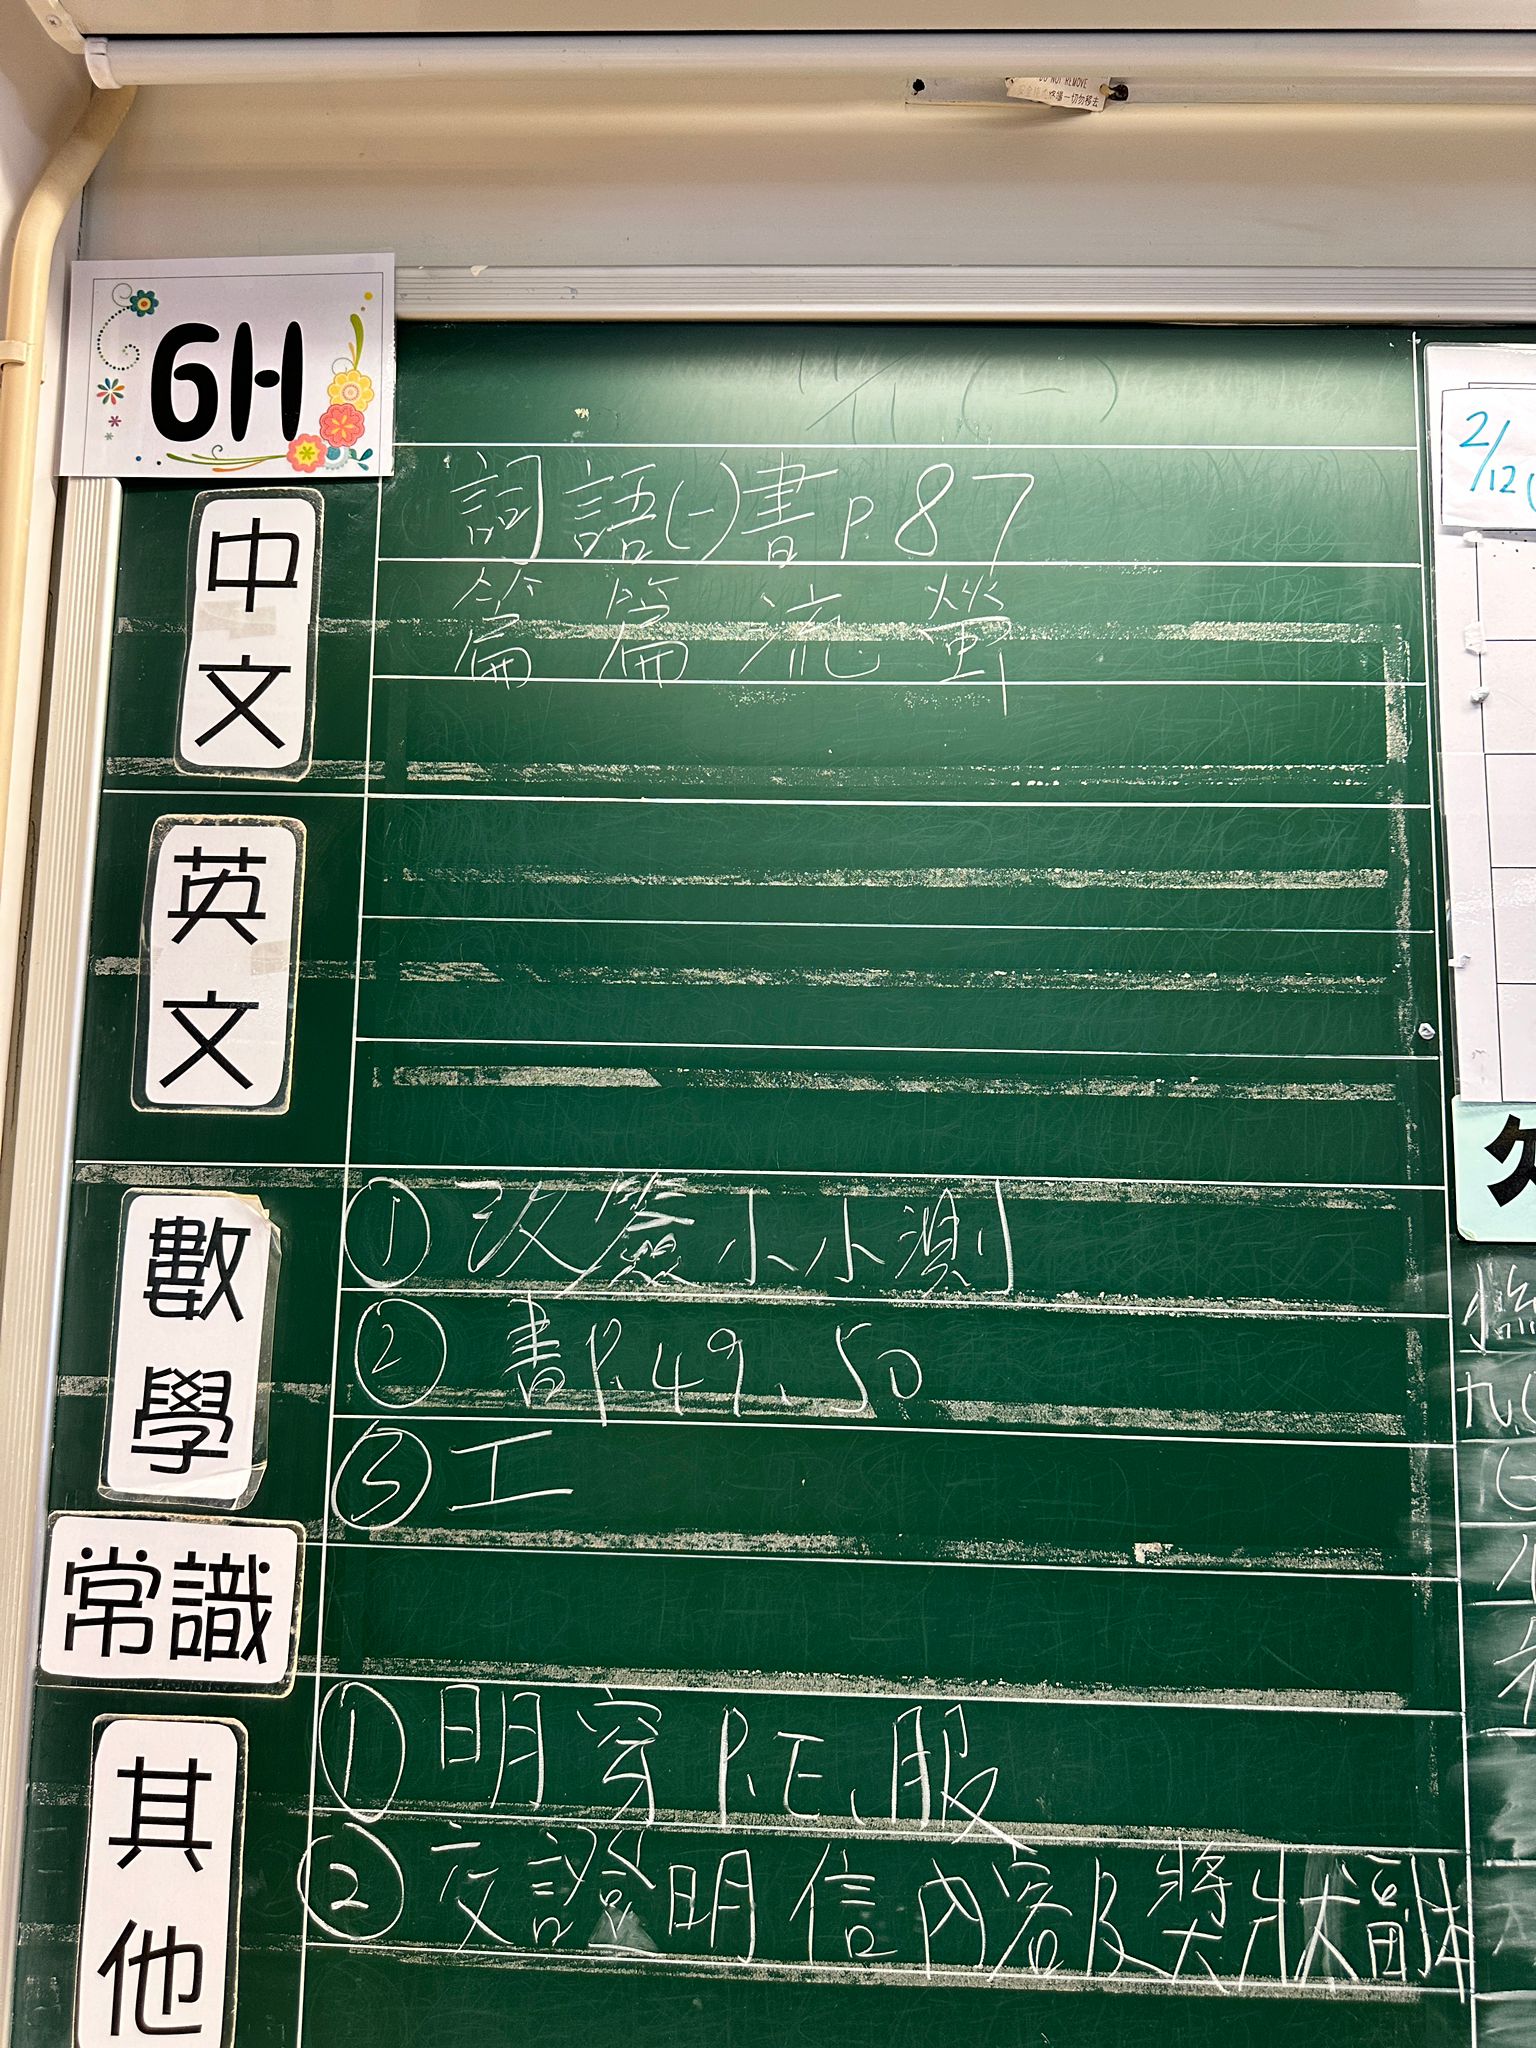 DO NOT REMOVE
一切勿移去
6H
11/11 (一)
2/12(
中文
詞語(一)書p.87
篇篇流螢
英文
數學
① 改簽小小測
② 書P.49、50
③ 工
常識
其他
① 明穿P.E.服
② 交證明信內容及獎狀副本
欠